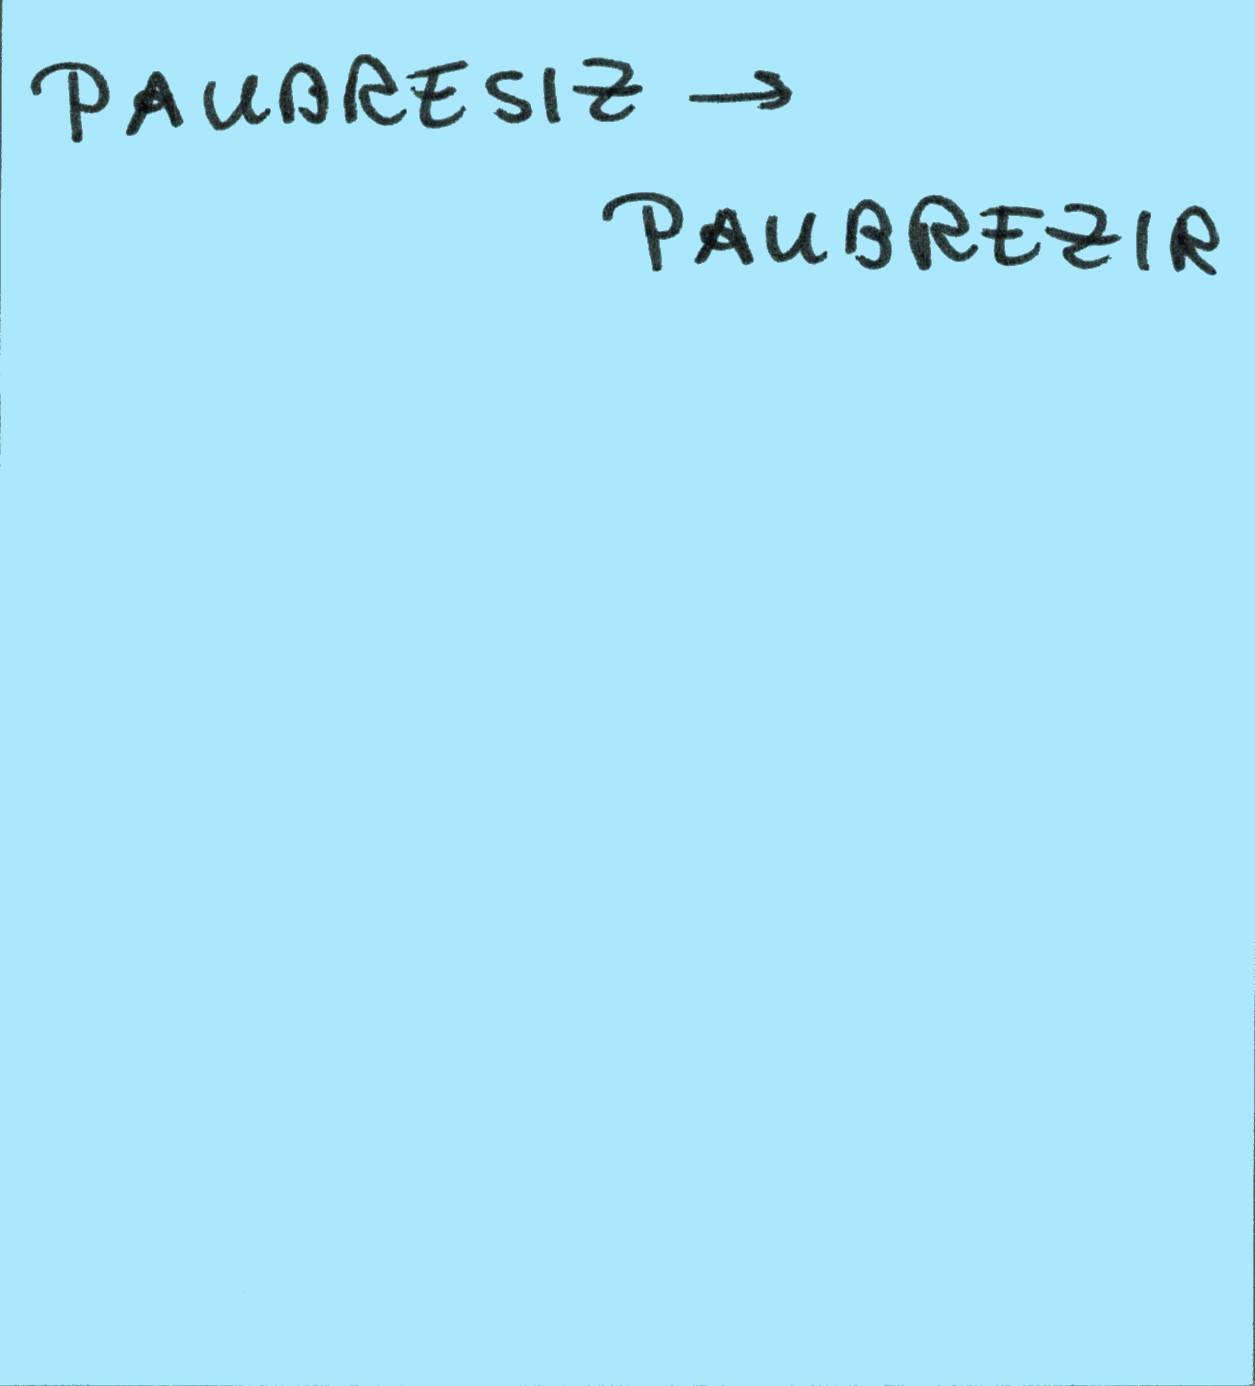 PAUBRESIZ →
PAUBREZIR